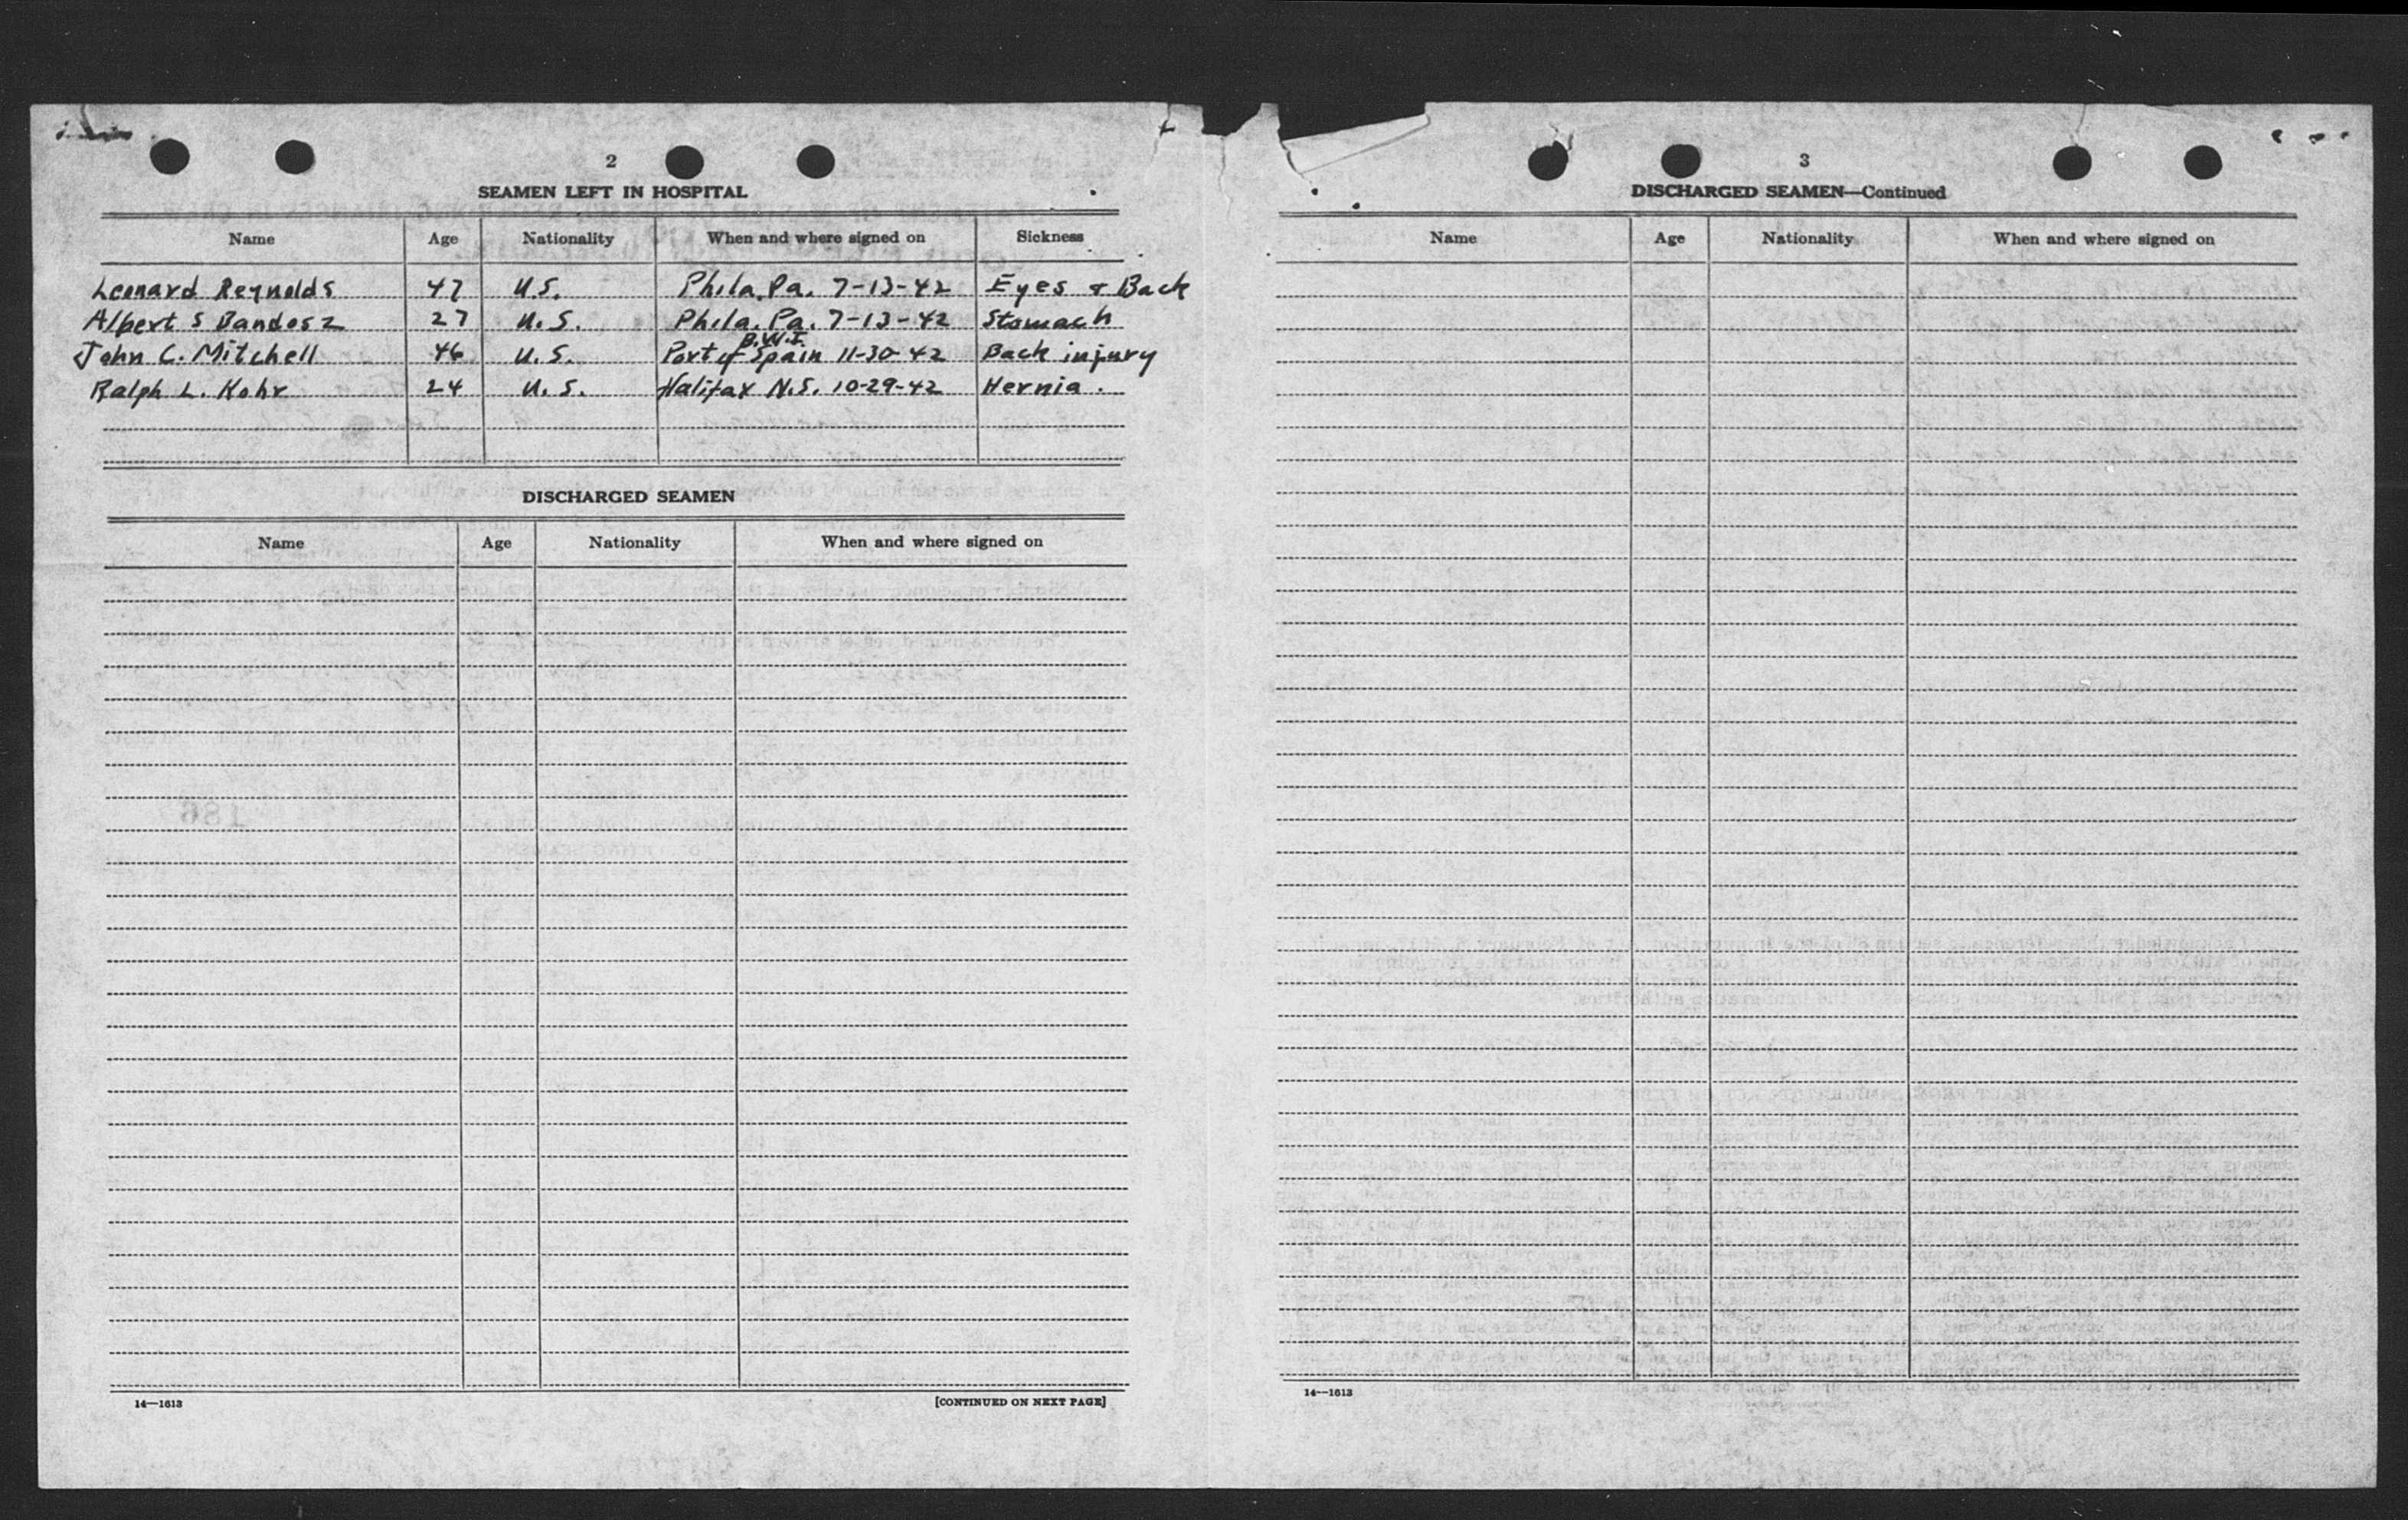 2
SEAMEN LEFT IN HOSPITAL
Name Age Nationality When and where signed on Sickness
Leonard Reynolds 47 U.S. Phila. Pa. 7-13-42 Eyes & Back
Albert S Bandosz 27 U.S. Phila. Pa. 7-13-42 Stomach
B.W.I.
John C. Mitchell 46 U.S. Port of Spain 11-30-42 Back injury
Ralph L. Kohr 24 U.S. Halifax N.S. 10-29-42 Hernia.
DISCHARGED SEAMEN
Name Age Nationality When and where signed on
14—1613 [CONTINUED ON NEXT PAGE]
3
DISCHARGED SEAMEN—Continued
Name Age Nationality When and where signed on
14—1613